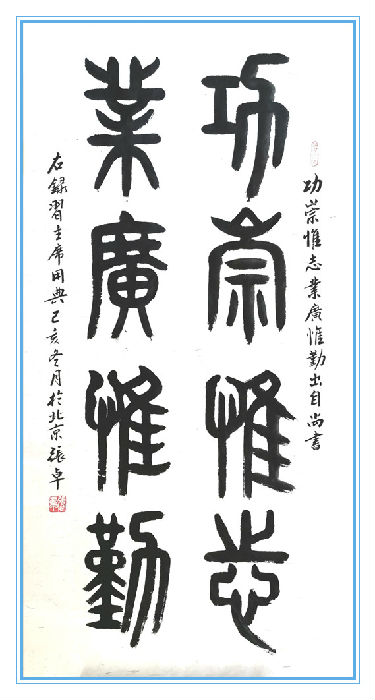 功崇惟志業廣惟勤出自尚書
功崇惟志
業廣惟勤
右錄習主席用典己亥冬月於北京張卓